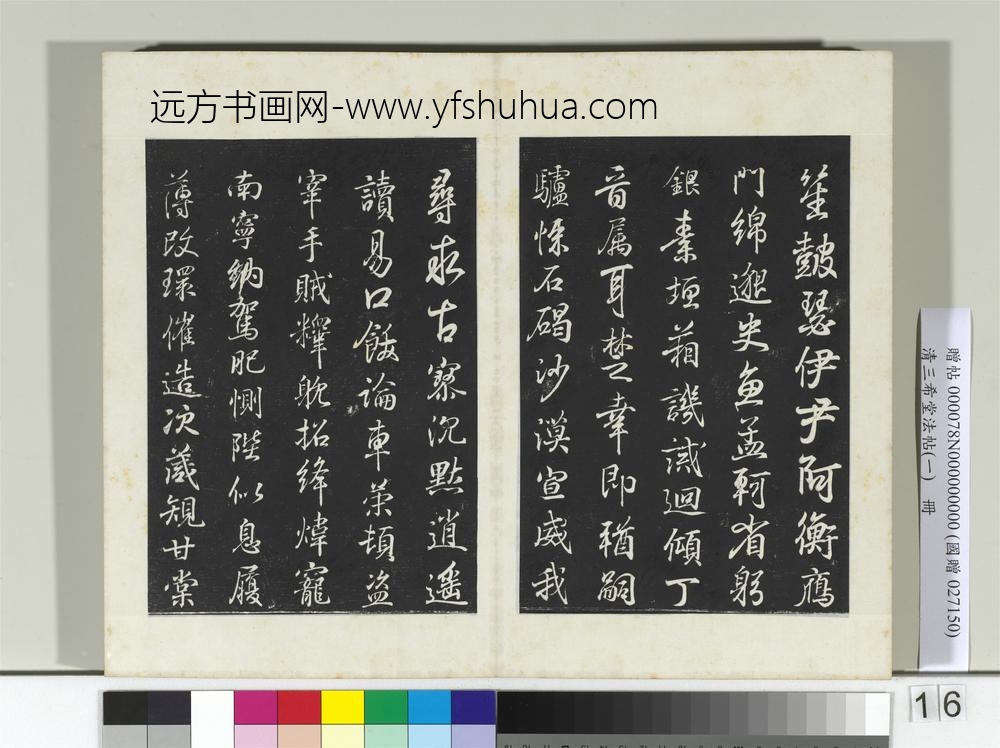 远方书画网-www.yfshuhua.com
笙鼓瑟伊尹阿衡鴈
門綿邈史魚孟軻省躬
銀素垣譏誡迴傾丁
音属耳幸即猶嗣
驢悚石碣沙漠宣威我
尋求古寮沉默逍遥
讀易口論車策頓盗
宰手賊釋躭招絳煒寵
南寧納駕肥惻陛似息履
薄改環催造次箴規甘棠
贈帖 000078N000000000 (國贈 027150)
清三希堂法帖(一) 冊
16